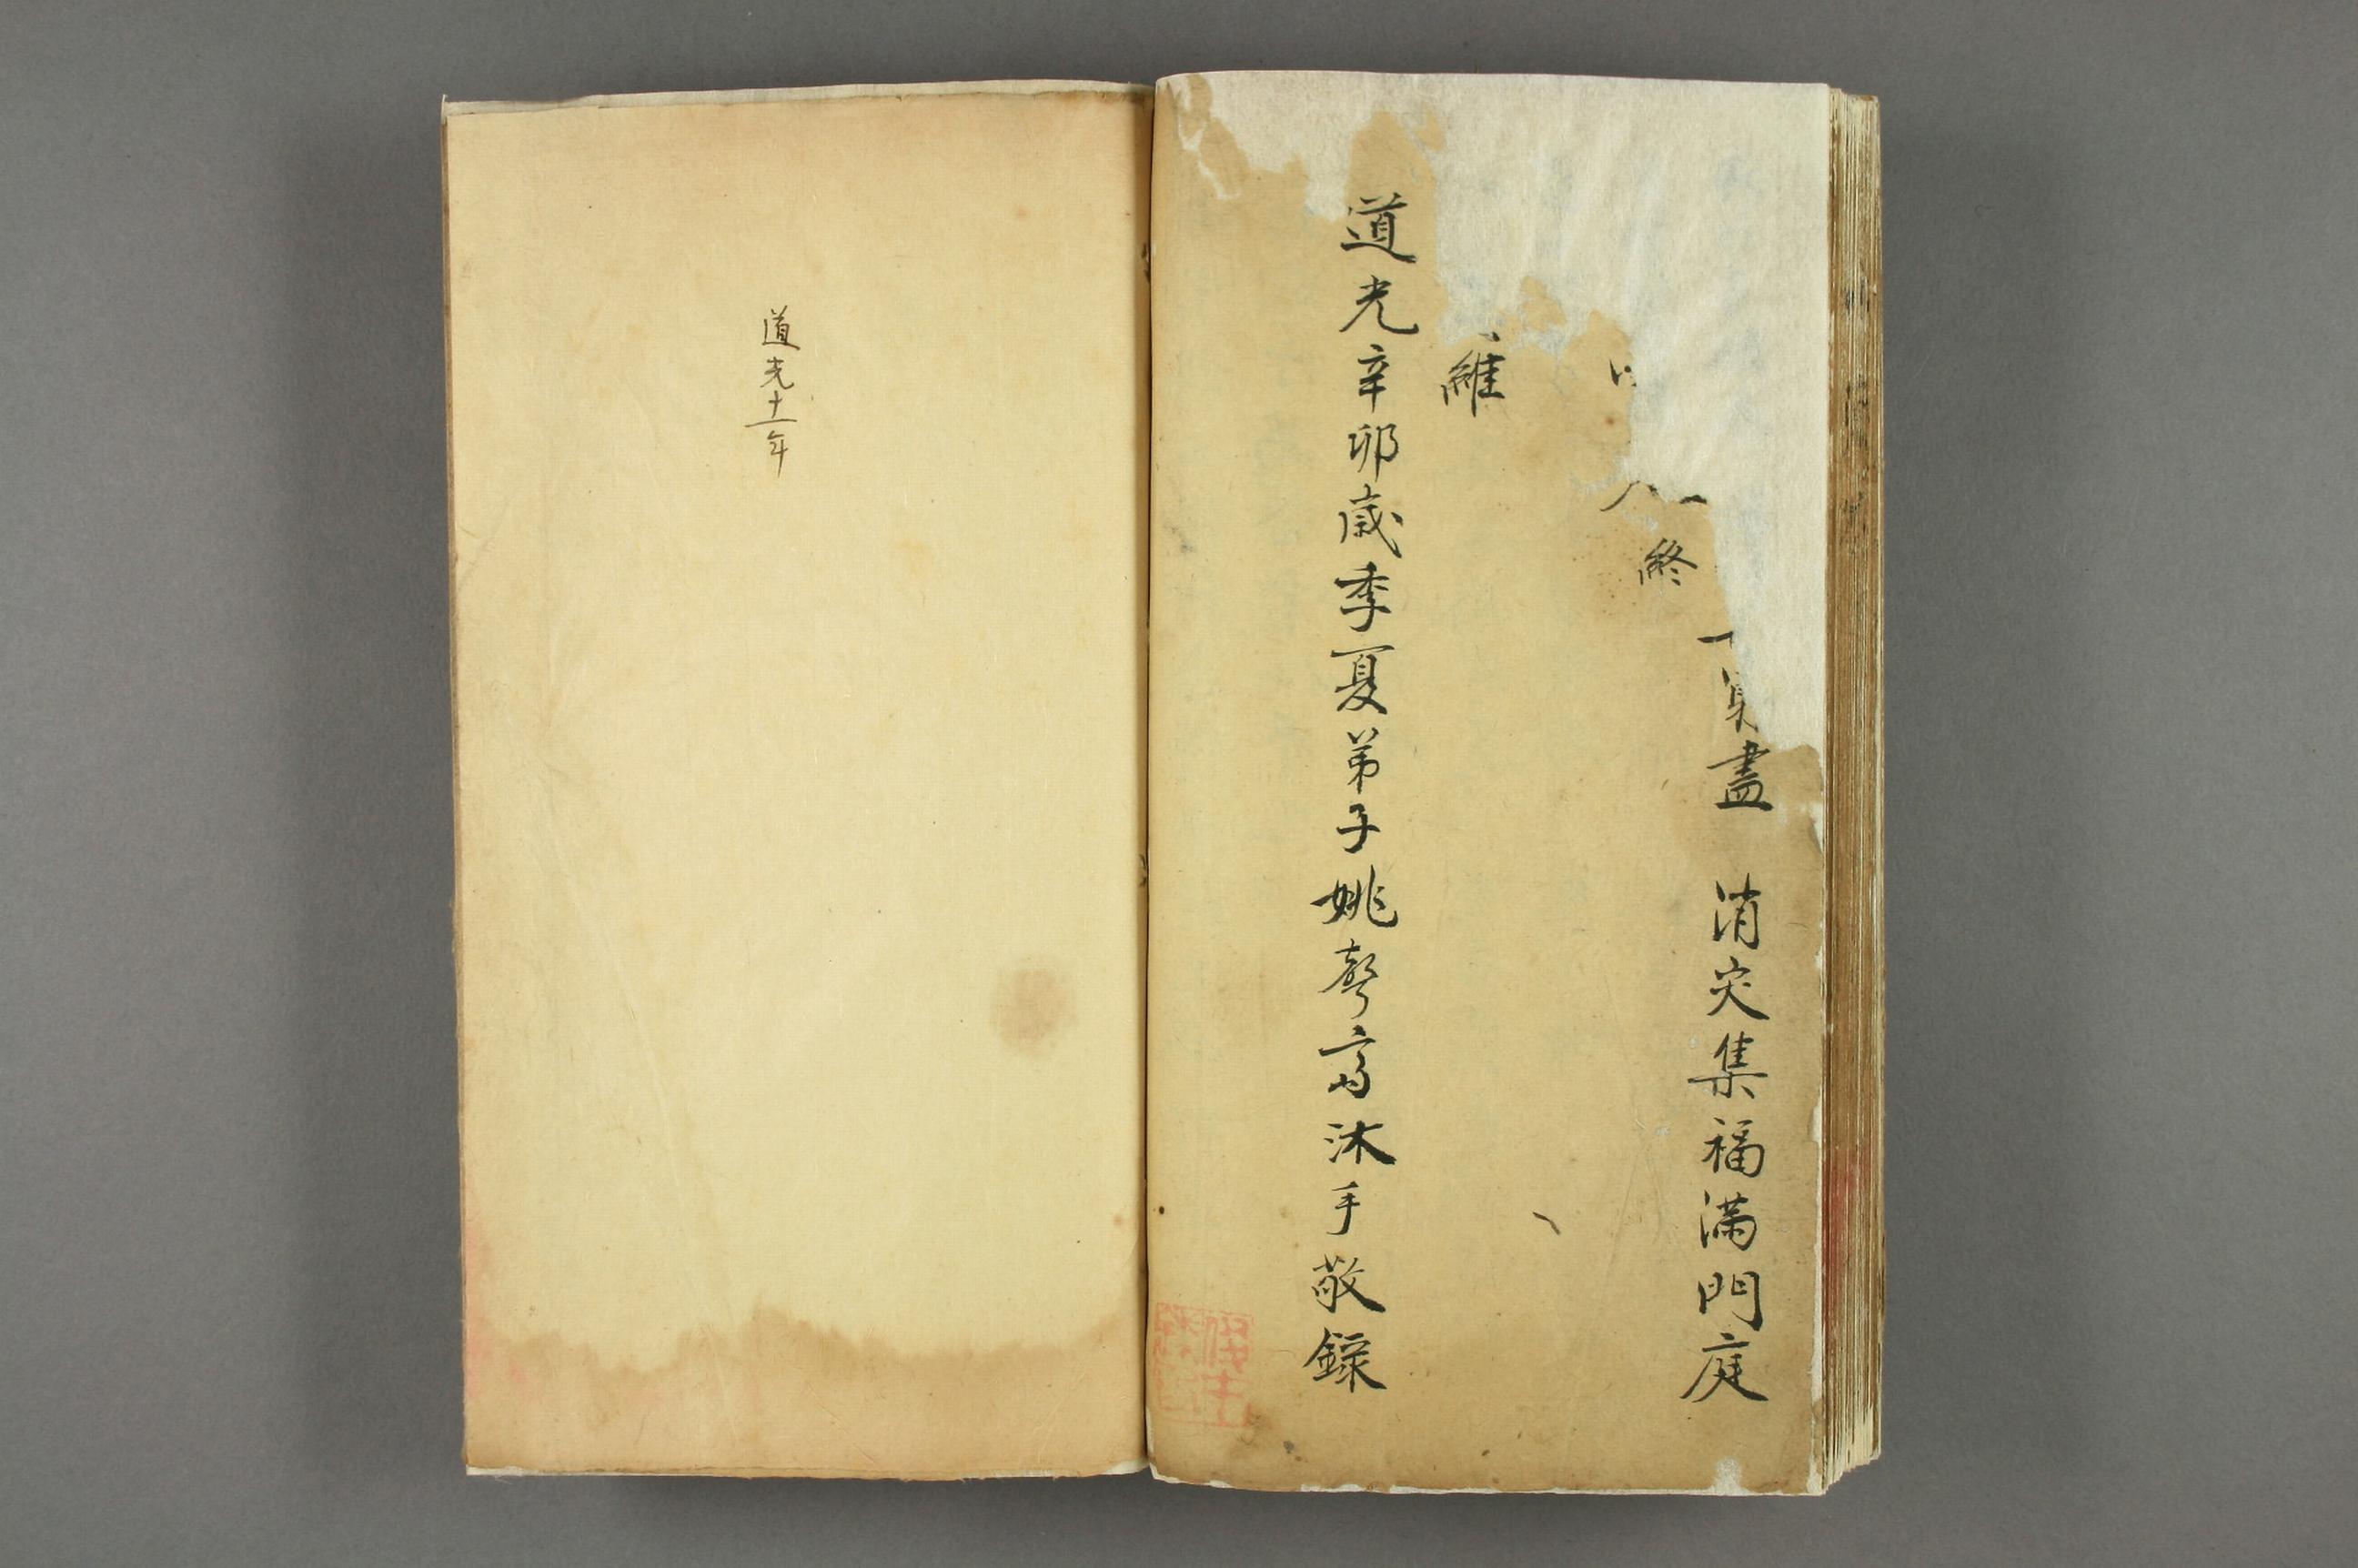 盡 消灾集福滿門庭
終
維
道光辛卯歲季夏弟子姚聲高沐手敬錄
道光十一年